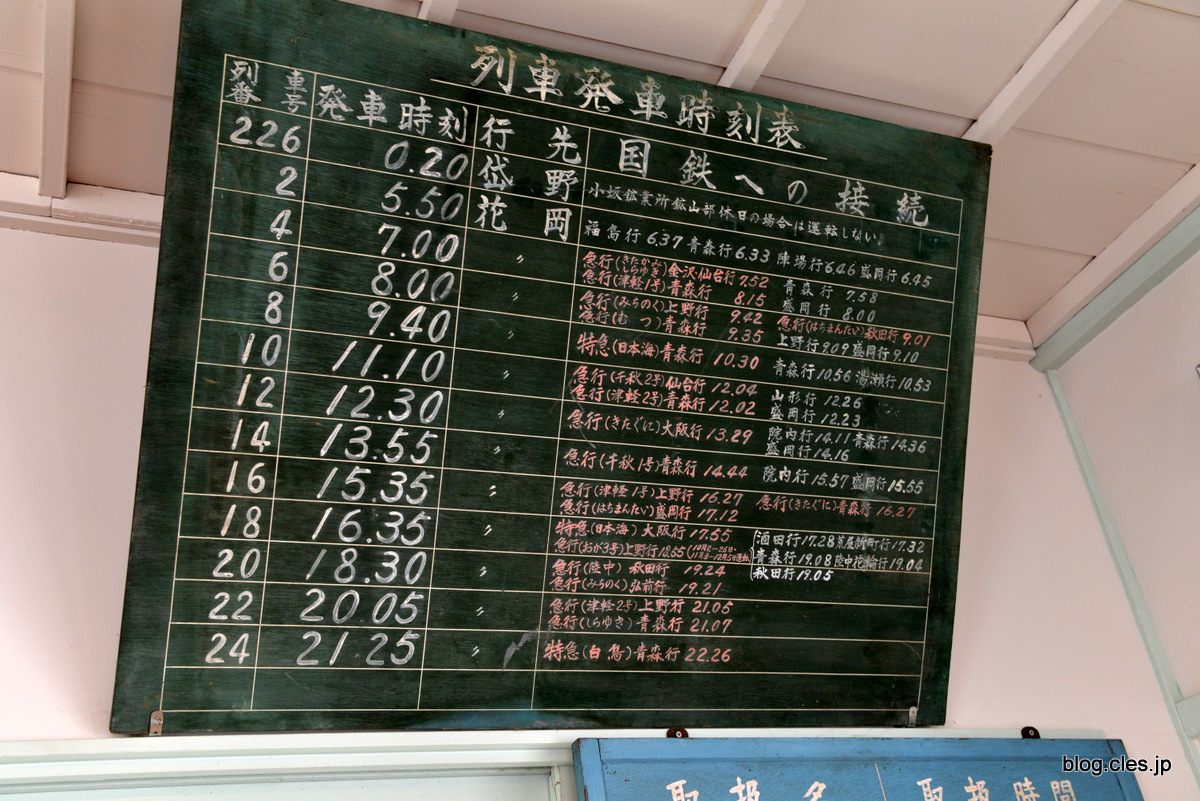 列車発車時刻表
列車番号 発車時刻 行先 国鉄への接続
226 0.20 岱野 小坂鉱業所鉱山部休日の場合は運転しない。
2 5.50 花岡 福島行 6.37 青森行 6.33 陣場行 6.46 盛岡行 6.45
4 7.00 〃 急行(きたかみ しらゆき)金沢・仙台行 7.52 青森行 7.58
急行(津軽1号)青森行 8.15 盛岡行 8.00
6 8.00 〃 急行(みちのく)上野行 9.42 急行(はちまんたい)秋田行 9.01
急行(むつ)青森行 9.35 上野行 9.09 盛岡行 9.10
8 9.40 〃 特急(日本海)青森行 10.30 青森行 10.56 湯瀬行 10.53
10 11.10 〃 急行(千秋2号)仙台行 12.04 山形行 12.26
急行(津軽2号)青森行 12.02 盛岡行 12.23
12 12.30 〃 急行(きたぐに)大阪行 13.29 院内行 14.11 青森行 14.36
盛岡行 14.16
14 13.55 〃 急行(千秋1号)青森行 14.44 院内行 15.57 盛岡行 15.55
16 15.35 〃 急行(津軽1号)上野行 16.27 急行(きたぐに)青森行 16.27
急行(はちまんたい)盛岡行 17.12
18 16.35 〃 特急(日本海)大阪行 17.55 酒田行 17.28 荒屋新町行 17.32
急行(おが3号)上野行 18.55 青森行 19.08 陸中花輪行 19.04
20 18.30 〃 急行(陸中)秋田行 19.24 秋田行 19.05
急行(みちのく)弘前行 19.21
22 20.05 〃 急行(津軽2号)上野行 21.05
急行(しらゆき)青森行 21.07
24 21.25 〃 特急(白鳥)青森行 22.26
取扱 取扱時間
blog.cles.jp